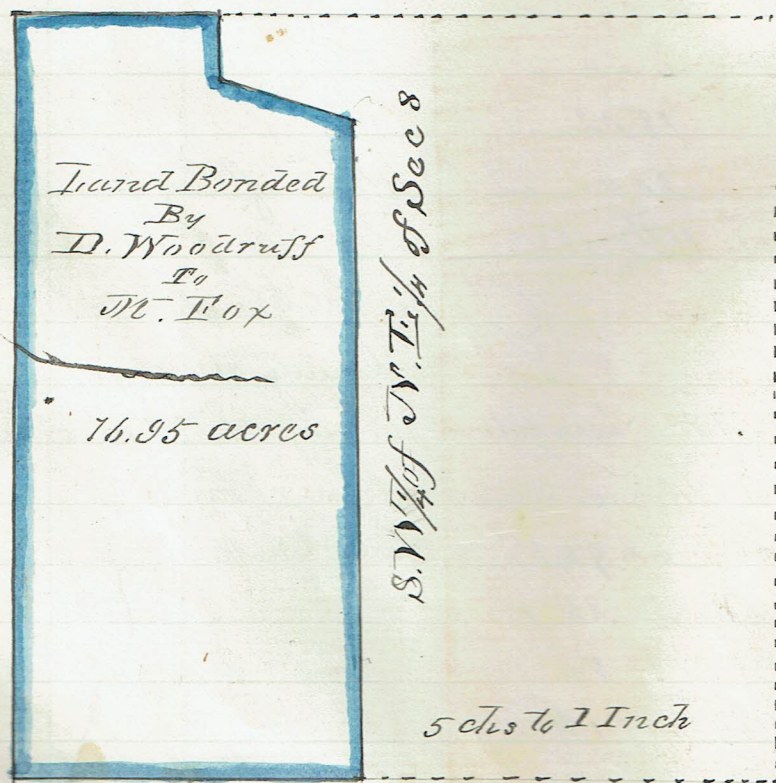 Land Bonded
By
D. Woodruff
To
M. Fox
16.95 acres
S.W.¼ of N.E.¼ of Sec 8
5 chs to 1 Inch